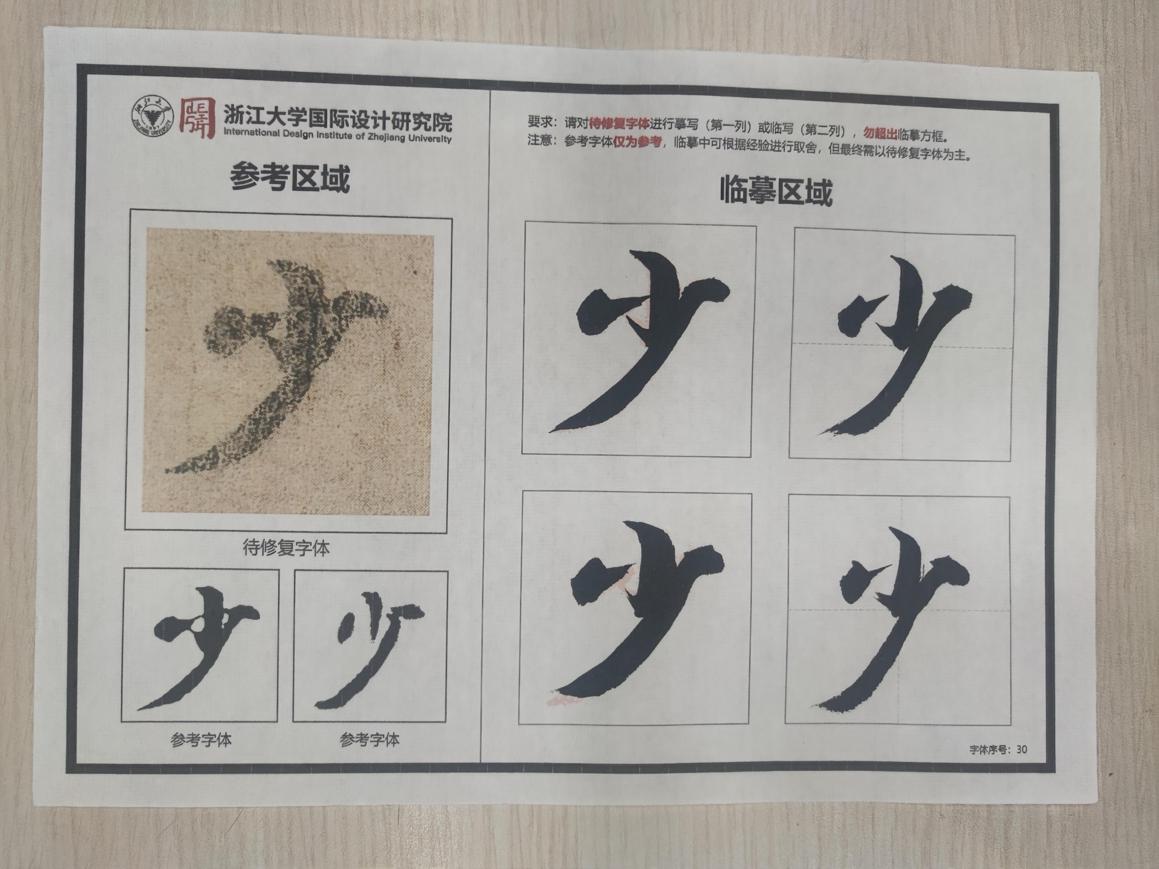 浙江大学国际设计研究院
International Design Institute of Zhejiang University
参考区域
少
待修复字体
少
少
参考字体
参考字体
要求：请对待修复字体进行摹写（第一列）或临写（第二列），勿超出临摹方框。
注意：参考字体仅为参考，临摹中可根据经验进行取舍，但最终需以待修复字体为主。
临摹区域
少
少
少
少
字体序号：30